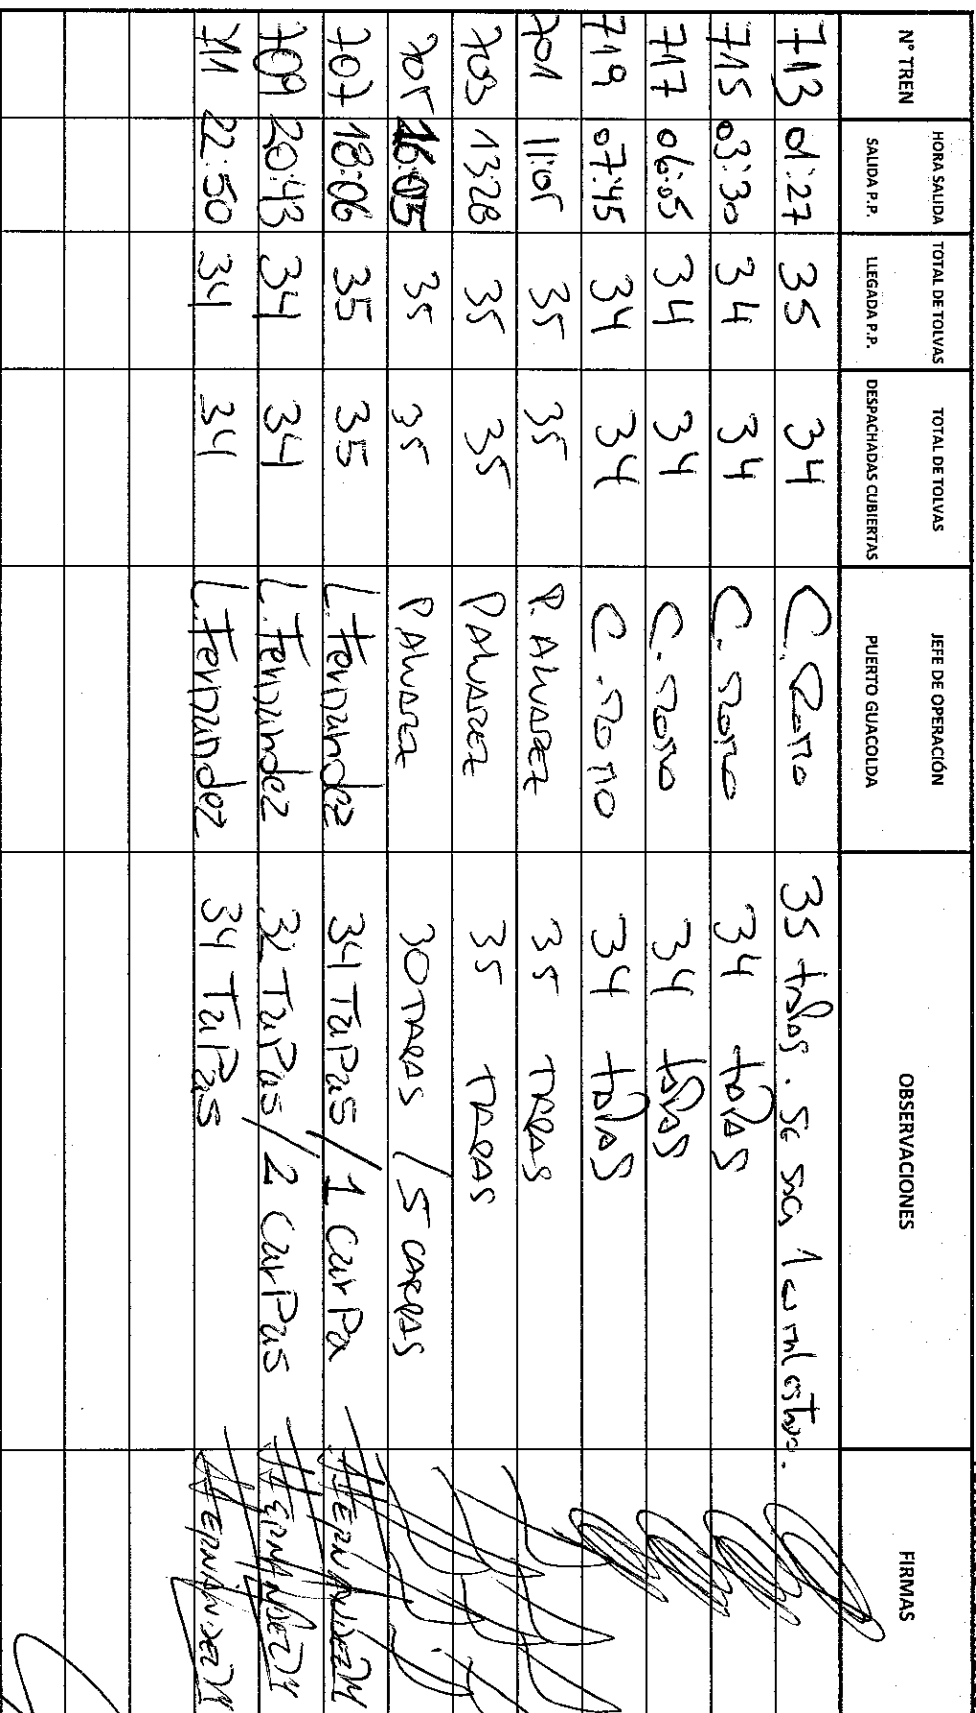 N° TREN HORA SALIDA SALIDA P.P. TOTAL DE TOLVAS LLEGADA P.P. TOTAL DE TOLVAS DESPACHADAS CUBIERTAS JEFE DE OPERACIÓN PUERTO GUACOLDA OBSERVACIONES FIRMAS
713 01:27 35 34 C. Romo 35 tapas. Se saca 1
715 03:30 34 34 C. Romo 34 tapas
717 06:05 34 34 C. Romo 34 tapas
719 07:45 34 34 C. Romo 34 tapas
701 11:05 35 35 P. ALVAREZ 35 TAPAS
703 13:28 35 35 P ALVAREZ 35 TAPAS
705 16:05 35 35 P ALVAREZ 30 TAPAS / 5 CARPAS
707 18:06 35 35 L. Fernandez 34 TaPas / 1 CarPa
709 20:43 34 34 L. Fernandez 32 TaPas / 2 CarPas
711 22:50 34 34 L. Fernandez 34 TaPas